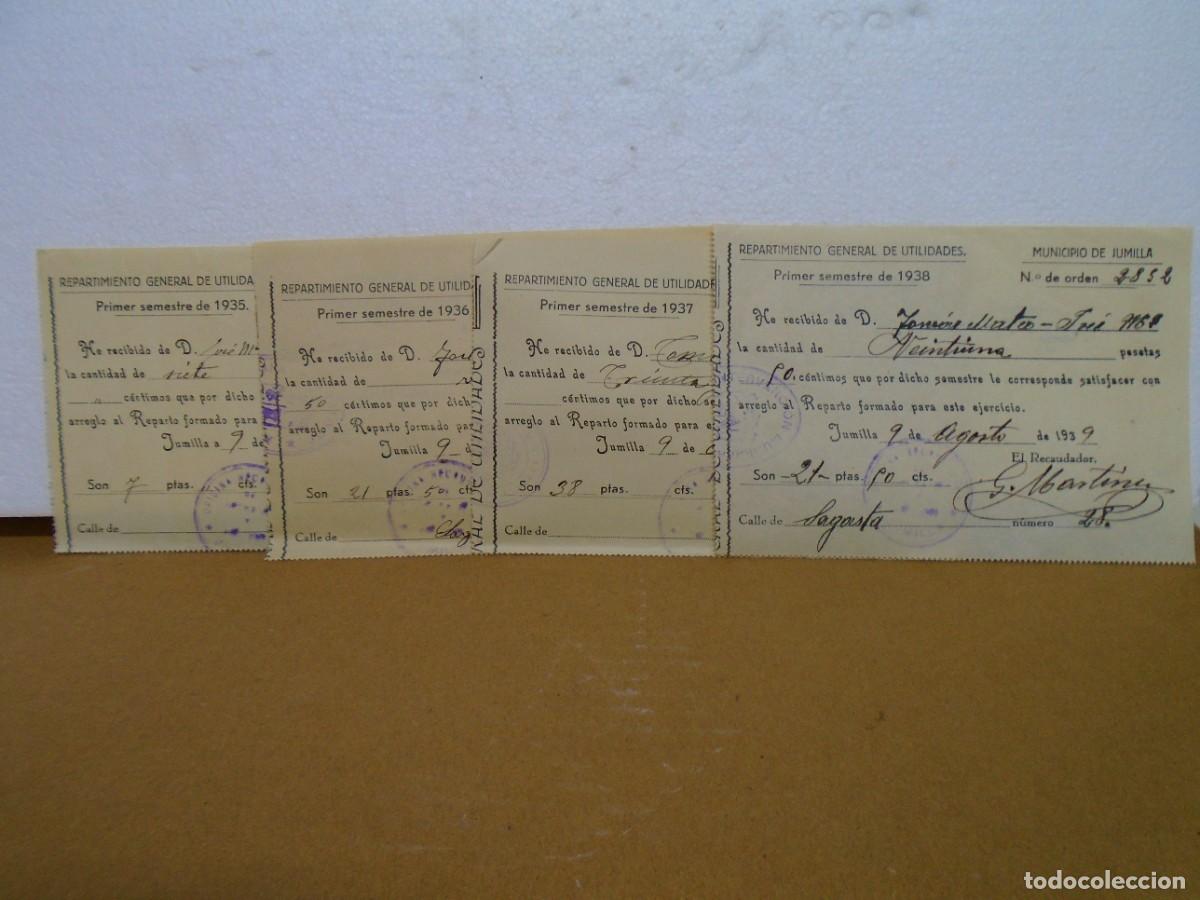 REPARTIMIENTO GENERAL DE UTILIDA
Primer semestre de 1935.
He recibido de D. José
la cantidad de siete
" céntimos que por dicho
arreglo al Reparto formado para
Jumilla a 9 de
Son 7 ptas. cts.
Calle de
REPARTIMIENTO GENERAL DE UTILID
Primer semestre de 1936
He recibido de D.
la cantidad de
50 céntimos que por dicho
arreglo al Reparto formado par
Jumilla 9
Son 21 ptas. 50 cts
Calle de Sag
RAL DE UTILIDADES
REPARTIMIENTO GENERAL DE UTILIDADE
Primer semestre de 1937
He recibido de D.
la cantidad de Treinta
céntimos que por dicho se
arreglo al Reparto formado para e
Jumilla 9 de
Son 38 ptas. cts.
Calle de
ERAL DE UTILIDADES
REPARTIMIENTO GENERAL DE UTILIDADES.
MUNICIPIO DE JUMILLA
Primer semestre de 1938
N.º de orden 2852
He recibido de D. Mateo - José
la cantidad de Veintiuna pesetas
50. céntimos que por dicho semestre le corresponde satisfacer con
arreglo al Reparto formado para este ejercicio.
Jumilla 9 de Agosto de 1939
El Recaudador,
Son -21- ptas. 50 cts.
G. Martínez
Calle de Sagasta número 28.
todocoleccion